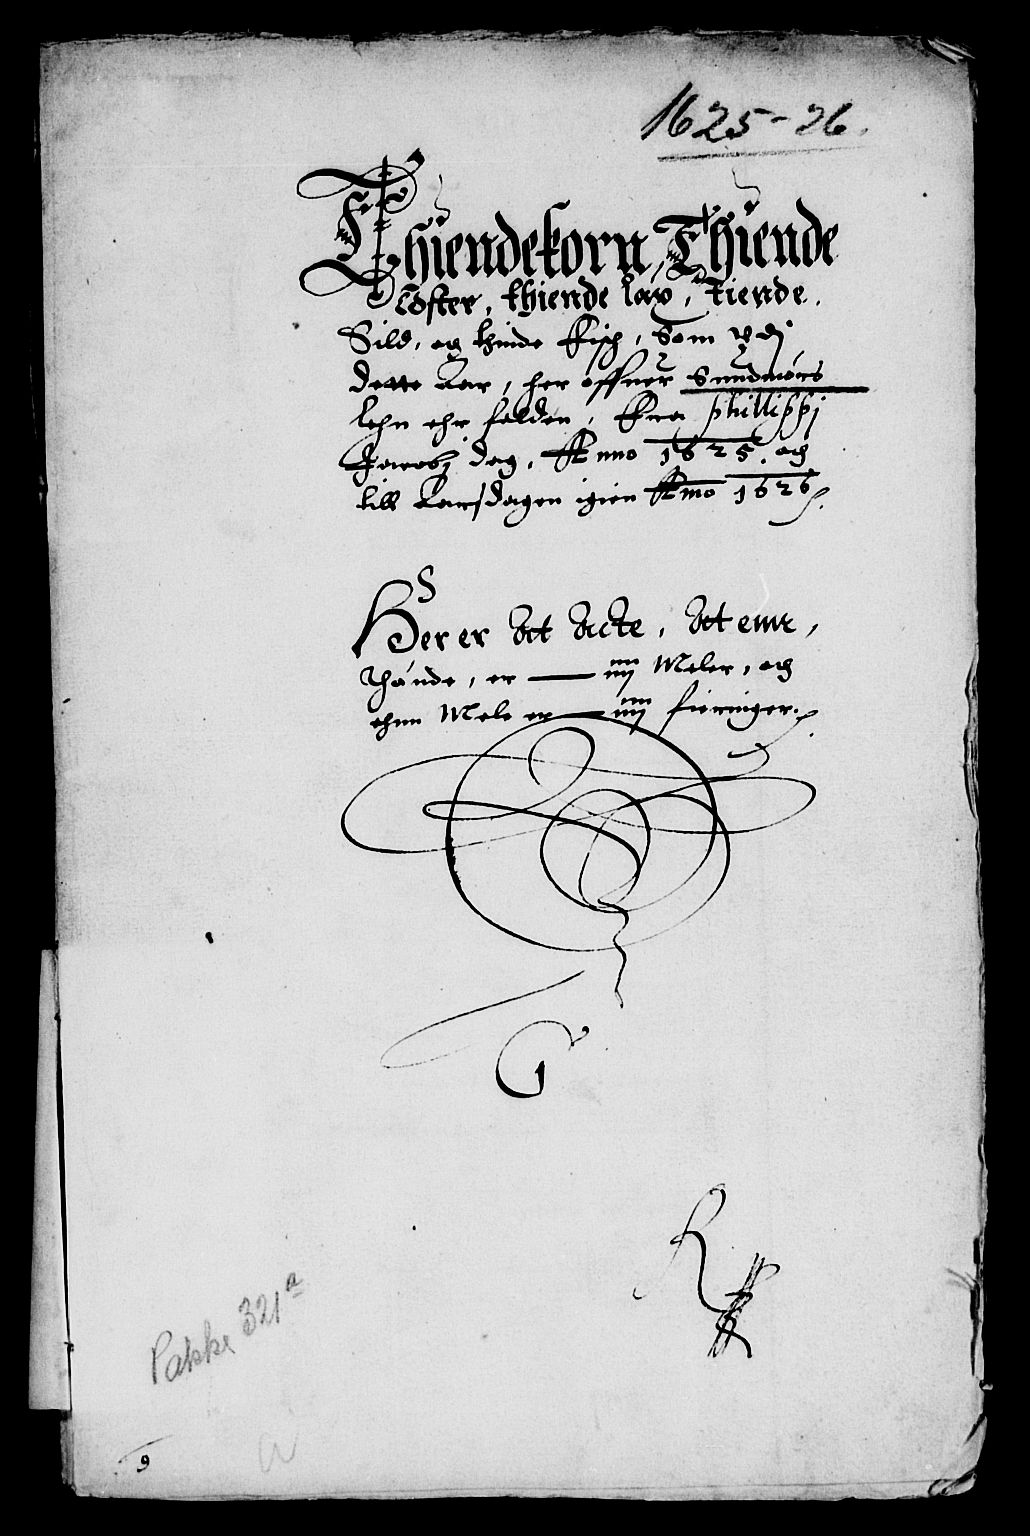 1625-26.
Thiendekorn, Thiende
Coster, thiende lax, Tiende
Sild, og thinde Fisch, Som vdj
dette Aar, her offuer Sundmørs
lehn ehr falden, Fra Phillippj
Jacobj dag, Anno 1625. og
till Aarsdagen igien Anno 1626
Her er Act Acte, At enn,
Thønde, er — iiij Meler, og
ehnn Mele er — iiij fieringer.
Pakke 321a
9